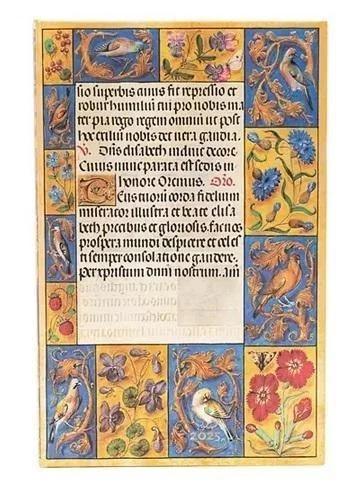 sio superbis cuius fit repressio et
robur humiliū tu pio nobis ma
ter pia rogo regem omniū ut post
hoc exiliū nobis det vera gaudia.
V. Dn̄s elisabeth induit decore.
Cuius nunc parata est sedis in
honore Oremus. Oro.
Tuorum corda fidelium
miserator illustra et beate elisa
beth precibus et gloriosis. fac nos
prospera mundi despicere et celes
ti semper consolatione gaudere.
Per xpristum dnm̄ nostrum. am̄
2025